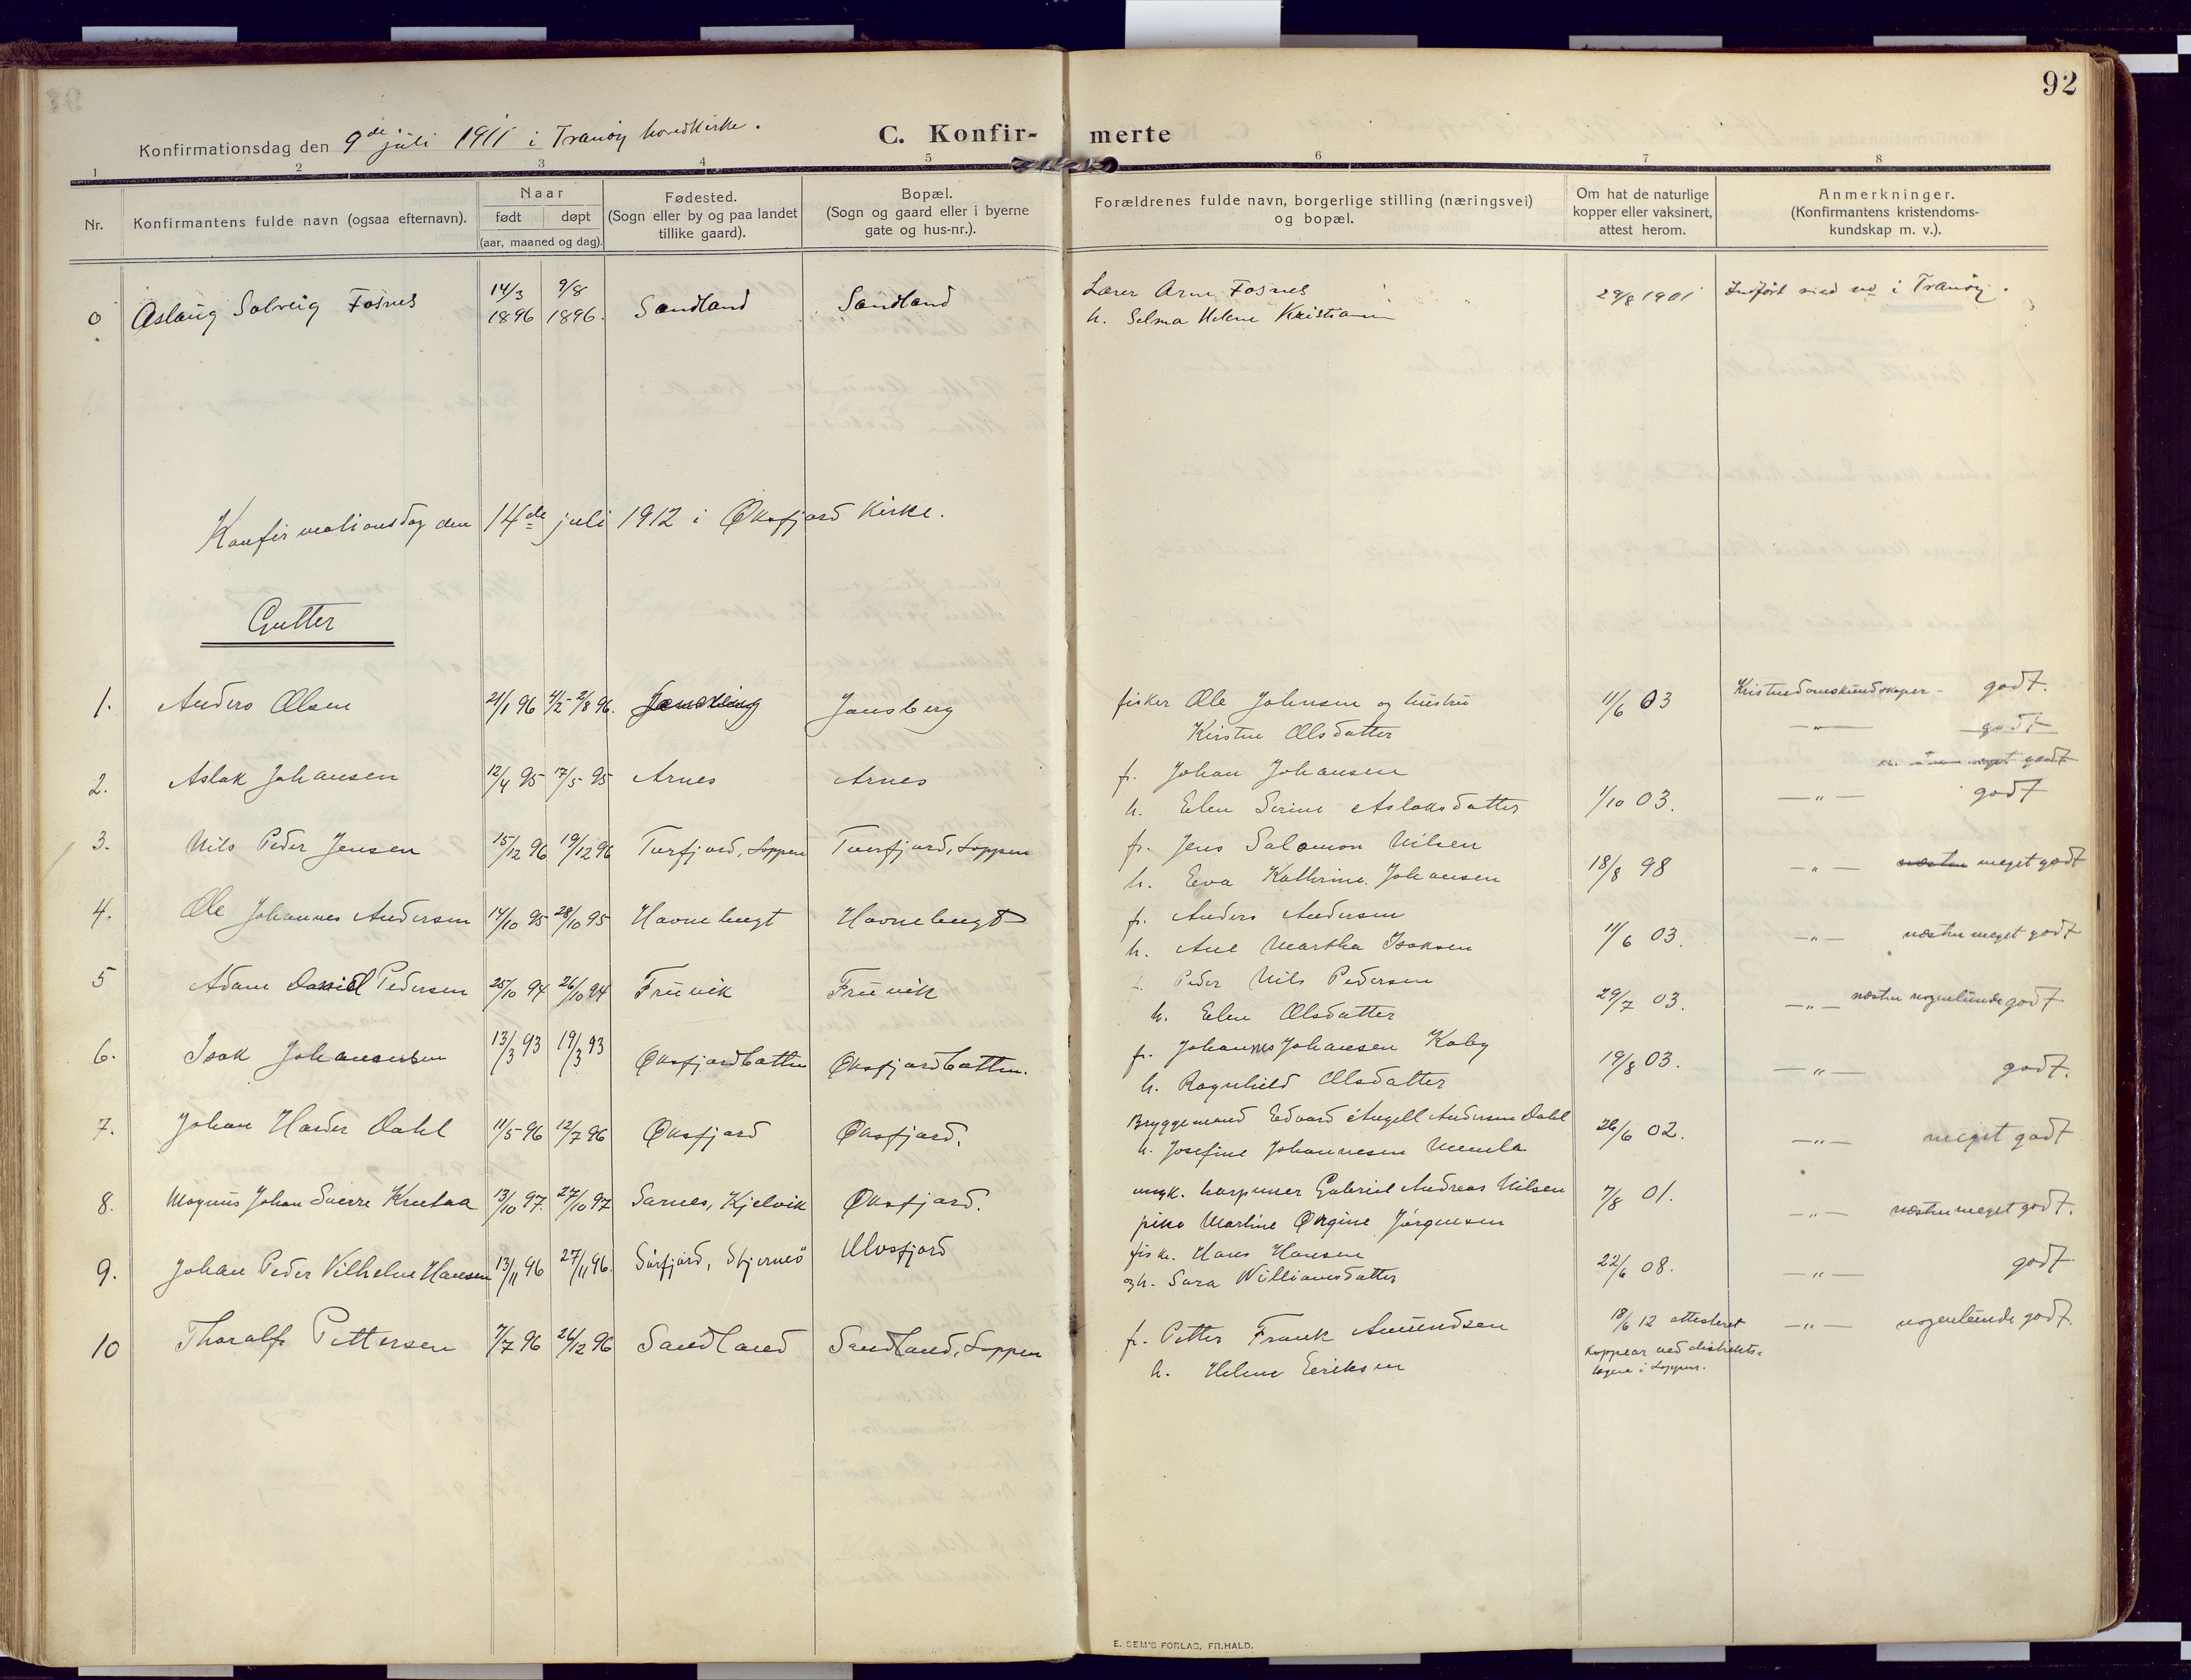 92
Konfirmationsdag den 9de juli 1911 i Tranöy hovedkirke.
C. Konfir- merte
1 2 3 4 5 6 7 8
Nr. Konfirmantens fulde navn (ogsaa efternavn). Naar født døpt (aar, maaned og dag). Fødested. (Sogn eller by og paa landet tillike gaard). Bopæl. (Sogn og gaard eller i byerne gate og hus-nr.). Forældrenes fulde navn, borgerlige stilling (næringsvei) og bopæl. Om hat de naturlige kopper eller vaksinert, attest herom. Anmerkninger. (Konfirmantens kristendoms-kundskap m. v.).
0 Aslaug Solveig Fosnes 14/3 1896 9/8 1896. Sandland Sandland Lærer Arne Fosnes 29/8 1901 Indført med no i Tranöy.
h. Selma Helene Kristian
Konfirmationsdag den 14de juli 1912 i Øksfjord Kirke.
Gutter
1. Anders Olsen 21/1 96 2/8 96. Jansberg fisker Ole Johnsen og hustru 11/6 03 Kristendomskundskaper - godt.
Kirstine Olsdatter —"— godt
2. Aslak Johansen 12/4 95 17/5 95 Arnes Arnes f. Johan Johansen 1/10 03. —"— godt
h. Elen Serine Aslaksdatter
3. Nils Peder Jensen 15/12 96 19/12 96 Turfjord, Loppen Tverfjord, Loppen f. Jens Salomon Nilsen 18/8 98 —"— næsten meget godt
h. Eva Kathrine Johansen
4. Ole Johannes Andersen 14/10 95 28/10 95 Havnebugt Havnebugt f. Anders Andersen 11/6 03. —"— næsten meget godt
h. Ane Martha Isaksen
5 Adam Daniel Pedersen 25/10 94 26/10 94 Fruvik Fruvik f. Peder Nils Pedersen 29/7 03. —"— næsten nogenlunde godt
h. Elen Olsdatter
6. Isak Johannesen 13/3 93 19/3 93 Øksfjordbotten Øksfjordbotten. f. Johannes Johansen Koby 19/8 03. —"— godt.
h. Ragnhild Olsdatter
7. Johan Harder Dahl 11/5 96 12/7 96 Øksfjord Øksfjord. Bryggemand Edvard Angell Andersen Dahl 26/6 02. —"— meget godt
h. Josefine Johannesen
8. Magnus Johan Sverre Krutaa 13/10 97. 27/10 97 Sarnes, Kjelvik Øksfjord. ungk. harpuner Gabriel Andreas Nilsen 7/8 01. —"— næsten meget godt.
pike Martine Jørgensen
9. Johan Peder Vilhelm Hansen 13/11 96 27/11 96. Sørfjord, Stjernö Ulvsfjord fisk. Hans Hansen 22/6 08. —"— godt
og h. Sara Williamsdatter
10 Thoralf Pettersen 7/7 96 26/12 96 Sandland Sandland, Loppen f. Petter Frank Amundsen 18/6 12 attesteret —"— nogenlunde godt.
h. Helene Eriksen koppear ved distrikts-
lægen i Loppen.
E. SEM'S FORLAG, FR.HALD.